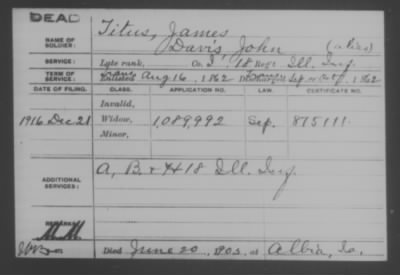 DEAD
NAME OF SOLDIER: Titus, James
Davis, John (alias)
SERVICE: Late rank, Co. I, 18 Regt. Ill. Inf.
TERM OF SERVICE: Enlisted Aug 16, 1862 Sep or Oct, 1862
DATE OF FILING. CLASS. APPLICATION NO. LAW. CERTIFICATE NO.
Invalid,
1916 Dec 21 Widow, 1,089,992 Sep. 875111
Minor,
ADDITIONAL SERVICES: A, B. & H 18 Ill. Inf.
REMARKS:
Died June 20, 1905, at Albia, Io.